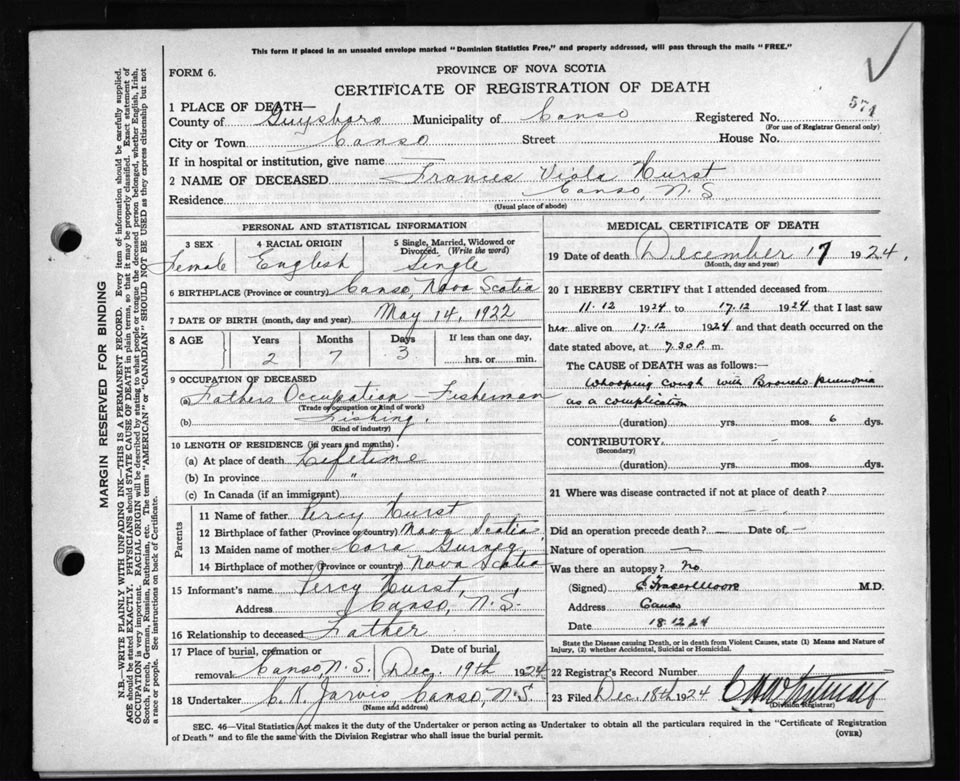 This form if placed in an unsealed envelope marked "Dominion Statistics Free," and properly addressed, will pass through the mails "FREE."
FORM 6.
PROVINCE OF NOVA SCOTIA
CERTIFICATE OF REGISTRATION OF DEATH
571
1 PLACE OF DEATH—
County of Guysboro Municipality of Canso Registered No.
(For use of Registrar General only)
City or Town Canso Street House No.
If in hospital or institution, give name —
2 NAME OF DECEASED Frances Viola Hurst
Residence Canso, N.S
(Usual place of abode)
PERSONAL AND STATISTICAL INFORMATION
3 SEX 4 RACIAL ORIGIN 5 Single, Married, Widowed or Divorced. (Write the word)
Female English Single
6 BIRTHPLACE (Province or country) Canso, Nova Scotia
7 DATE OF BIRTH (month, day and year) May 14, 1922
8 AGE Years Months Days If less than one day,
2 7 3 hrs. or min.
9 OCCUPATION OF DECEASED
(a) Fathers Occupation - Fisherman
(Trade or occupation or kind of work)
(b) Fishing.
(Kind of industry)
10 LENGTH OF RESIDENCE (in years and months)
(a) At place of death Lifetime
(b) In province "
(c) In Canada (if an immigrant)
Parents
11 Name of father Percy Hurst
12 Birthplace of father (Province or country) Nova Scotia
13 Maiden name of mother Cora
14 Birthplace of mother (Province or country) Nova Scotia
15 Informant's name Percy Hurst,
Address Canso, N.S.
16 Relationship to deceased Father
17 Place of burial, cremation or removal Canso N.S. Date of burial, Dec. 19th 1924
18 Undertaker C.K. Jarvis, Canso, N.S
(Name and address)
MEDICAL CERTIFICATE OF DEATH
19 Date of death December 17 1924.
(Month, day and year)
20 I HEREBY CERTIFY that I attended deceased from
11.12 1924 to 17.12 1924 that I last saw
her alive on 17.12 1924 and that death occurred on the
date stated above, at 7.30 P. m.
The CAUSE OF DEATH was as follows:—
Whooping Cough with Broncho pneumonia
as a complication
(duration) yrs. mos. 6 dys.
CONTRIBUTORY.
(Secondary)
(duration) yrs. mos. dys.
21 Where was disease contracted if not at place of death?
Did an operation precede death? — Date of —
Nature of operation —
Was there an autopsy? No
(Signed) C Fraser Moore M.D.
Address Canso
Date 18.12.24
State the Disease causing Death, or in death from Violent Causes, state (1) Means and Nature of Injury, (2) whether Accidental, Suicidal or Homicidal.
22 Registrar's Record Number
23 Filed Dec. 18th 1924
(Division Registrar)
SEC. 46—Vital Statistics Act makes it the duty of the Undertaker or person acting as Undertaker to obtain all the particulars required in the "Certificate of Registration
of Death" and to file the same with the Division Registrar who shall issue the burial permit.
(OVER)
MARGIN RESERVED FOR BINDING
N.B.—WRITE PLAINLY WITH UNFADING INK—THIS IS A PERMANENT RECORD. Every item of information should be carefully supplied.
AGE should be stated EXACTLY. PHYSICIANS should STATE CAUSE OF DEATH in plain terms, so that it may be properly classified. Exact statement of
OCCUPATION is very important. RACIAL ORIGIN will be described by stating to what people or tongue the deceased person belonged, whether English, Irish,
Scotch, French, German, Russian, Ruthenian, etc. The terms "AMERICAN" or "CANADIAN" SHOULD NOT BE USED as they express citizenship but not
a race or people. See instructions on back of Certificate.